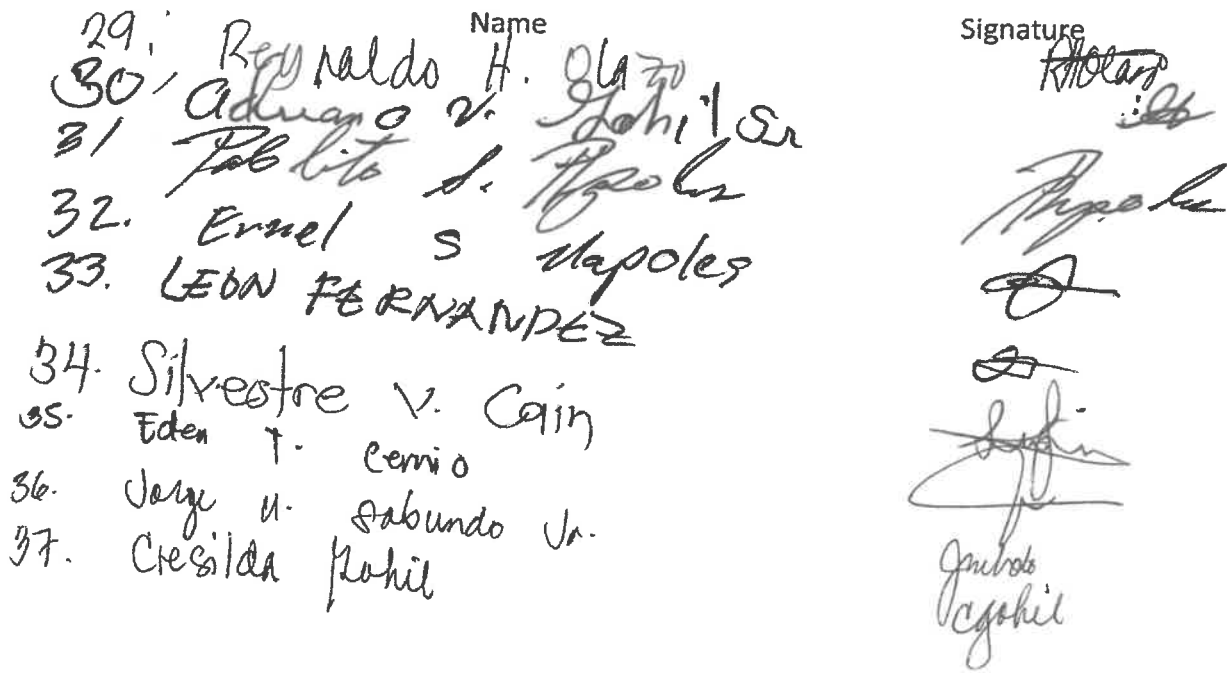 Name Signature
29. Reynaldo H. Olazo RHOlazo
30. Adriano V. Gohil Sr
31 Pablito S. Napoles Napoles
32. Ernel S Napoles
33. LEON FERNANDEZ
34. Silvestre V. Cain
35. Eden T. Cernio
36. Jorge U. Sabundo Jr.
37. Cresilda Gohil
CGohil